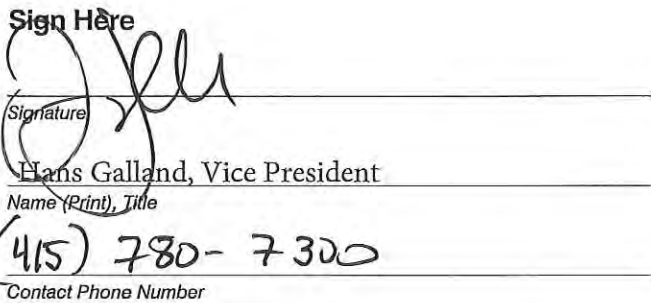 Sign Here
Signature
Hans Galland, Vice President
Name (Print), Title
(415) 780-7300
Contact Phone Number